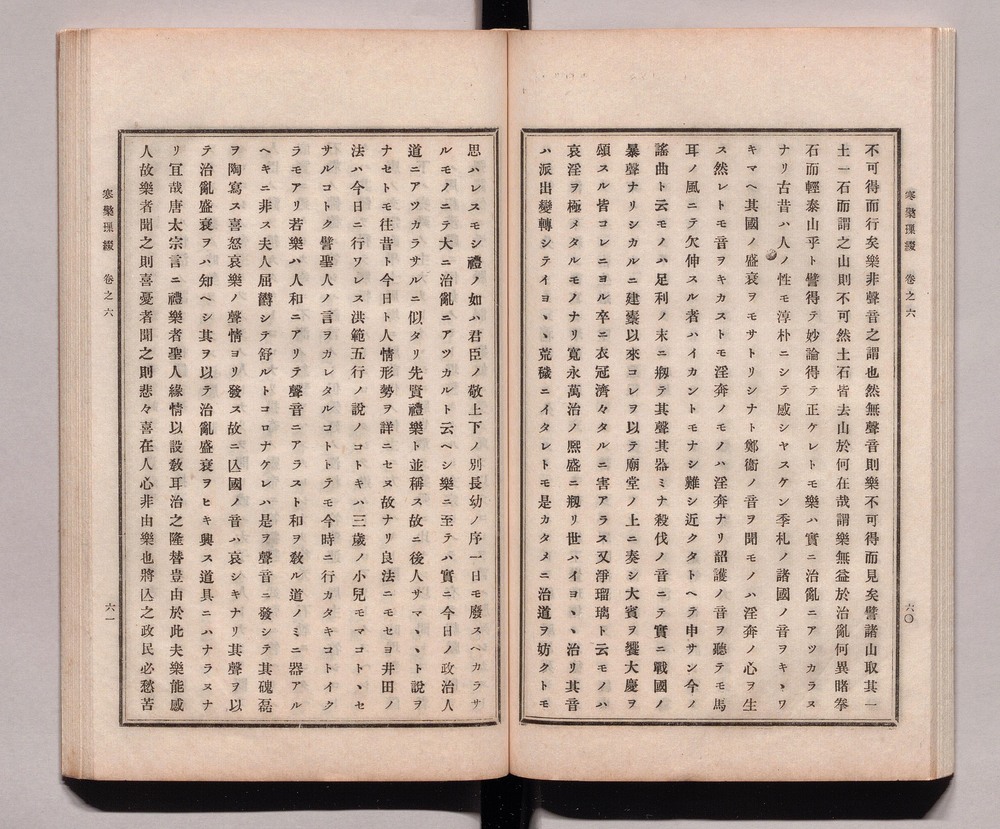 寒檠璅綴　卷之六
六〇
不可得而行矣樂非聲音之謂也然無聲音則樂不可得而見矣譬諸山取其一
土一石而謂之山則不可然土石皆去山於何在哉謂樂無益於治亂何異睹拳
石而輕泰山乎ト譬得テ妙論得テ正ケレトモ樂ハ實ニ治亂ニアツカラヌ
ナリ古昔ハ人ノ性モ淳朴ニシテ感シヤスケン季札ノ諸國ノ音ヲキヽワ
キマヘ其國ノ盛衰ヲモサトリシナト鄭衞ノ音ヲ聞モノハ淫奔ノ心ヲ生
ス然レトモ音ヲキカストモ淫奔ノモノハ淫奔ナリ韶護ノ音ヲ聽テモ馬
耳ノ風ニテ欠伸スル者ハイカントモナシ難シ近クタトヘテ申サン今ノ
謠曲ト云モノハ足利ノ末ニ剏テ其聲其器ミナ殺伐ノ音ニテ實ニ戰國ノ
暴聲ナリシカルニ建櫜以來コレヲ以テ廟堂ノ上ニ奏シ大賓ヲ饗大慶ヲ
頌スル皆コレニヨル卒ニ衣冠濟々タルニ害アラス又淨瑠璃ト云モノハ
哀淫ヲ極メタルモノナリ寬永萬治ノ熈盛ニ剏リ世ハイヨヽヽ治リ其音
ハ派出變轉シテイヨヽヽ荒穢ニイタレトモ是カタメニ治道ヲ妨クトモ
思ハレスモシ禮ノ如ハ君臣ノ敬上下ノ別長幼ノ序一日モ廢スヘカラサ
ルモノニテ大ニ治亂ニアツカルト云ヘシ樂ニ至テハ實ニ今日ノ政治人
道ニアツカラサルニ似タリ先賢禮樂ト並稱ス故ニ後人サマヽヽト說ヲ
ナセトモ往昔ト今日ト人情形勢ヲ詳ニセヌ故ナリ良法ニモセヨ井田ノ
法ハ今日ニ行ワレス洪範五行ノ說ノコトキハ三歲ノ小兒モマコトヽセ
サルコトク譬聖人ノ言ヲカレタルコトトテモ今時ニ行カタキコトイク
ラモアリ若樂ハ人和ニアリテ聲音ニアラスト和ヲ敎ル道ノミニ器アル
ヘキニ非ス夫人屈欝シテ舒ルトコロナケレハ是ヲ聲音ニ發シテ其磈磊
ヲ陶寫ス喜怒哀樂ノ聲情ヨリ發ス故ニ亾國ノ音ハ哀シキナリ其聲ヲ以
テ治亂盛衰ヲハ知ヘシ其ヲ以テ治亂盛衰ヲヒキ興ス道具ニハナラヌナ
リ冝哉唐太宗言ニ禮樂者聖人緣情以設敎耳治之隆替豈由於此夫樂能感
人故樂者聞之則喜憂者聞之則悲々喜在人心非由樂也將亾之政民必愁苦
寒檠璅綴　卷之六
六一